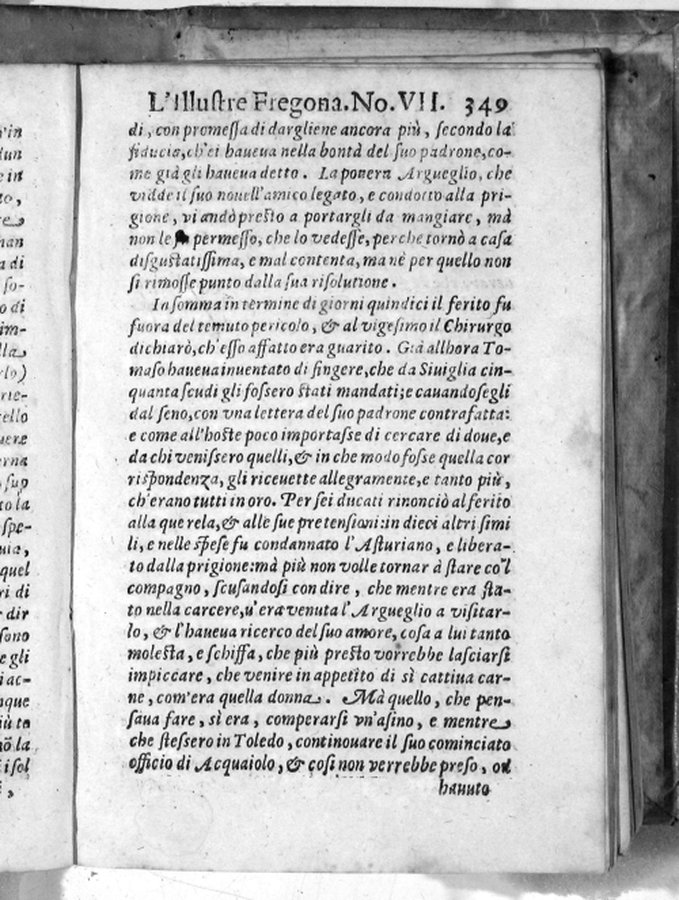 L'Illustre Fregona. No. VII. 349
di, con promessa di dargliene ancora più, secondo la
fiducia, ch'ei haueua nella bontà del suo padrone, co-
me già gli haueua detto. La pouera Argueglio, che
vidde il suo nouell'amico legato, e condotto alla pri-
gione, vi andò presto a portargli da mangiare, mà
non le fu permesso, che lo vedesse, perche tornò a casa
disgustatissima, e mal contenta, ma nè per quello non
si rimosse punto dalla sua risolutione.
In somma in termine di giorni quindici il ferito fu
fuora del temuto pericolo, & al vigesimo il Chirurgo
dichiarò, ch'esso affatto era guarito. Già allhora To-
maso haueua inuentato di fingere, che da Siuiglia cin-
quanta scudi gli fossero stati mandati; e cauandosegli
dal seno, con vna lettera del suo padrone contrafatta:
e come all'hoste poco importasse di cercare di doue, e
da chi venissero quelli, & in che modo fosse quella cor
rispondenza, gli riceuette allegramente, e tanto più,
ch'erano tutti in oro. Per sei ducati rinonciò al ferito
alla querela, & alle sue pretensioni: in dieci altri simi
li, e nelle spese fu condannato l'Asturiano, e libera-
to dalla prigione: mà più non volle tornar à stare co'l
compagno, scusandosi con dire, che mentre era sta-
to nella carcere, u' era venuta l'Argueglio a visitar-
lo, & l'haueua ricerco del suo amore, cosa a lui tanto
molesta, e schiffa, che più presto vorrebbe lasciarsi
impiccare, che venire in appetito di sì cattiua car-
ne, com'era quella donna. Mà quello, che pen-
saua fare, sì era, comperarsi vn'asino, e mentre
che stessero in Toledo, continouare il suo cominciato
officio di Acquaiolo, & così non verrebbe preso, od
hauuto